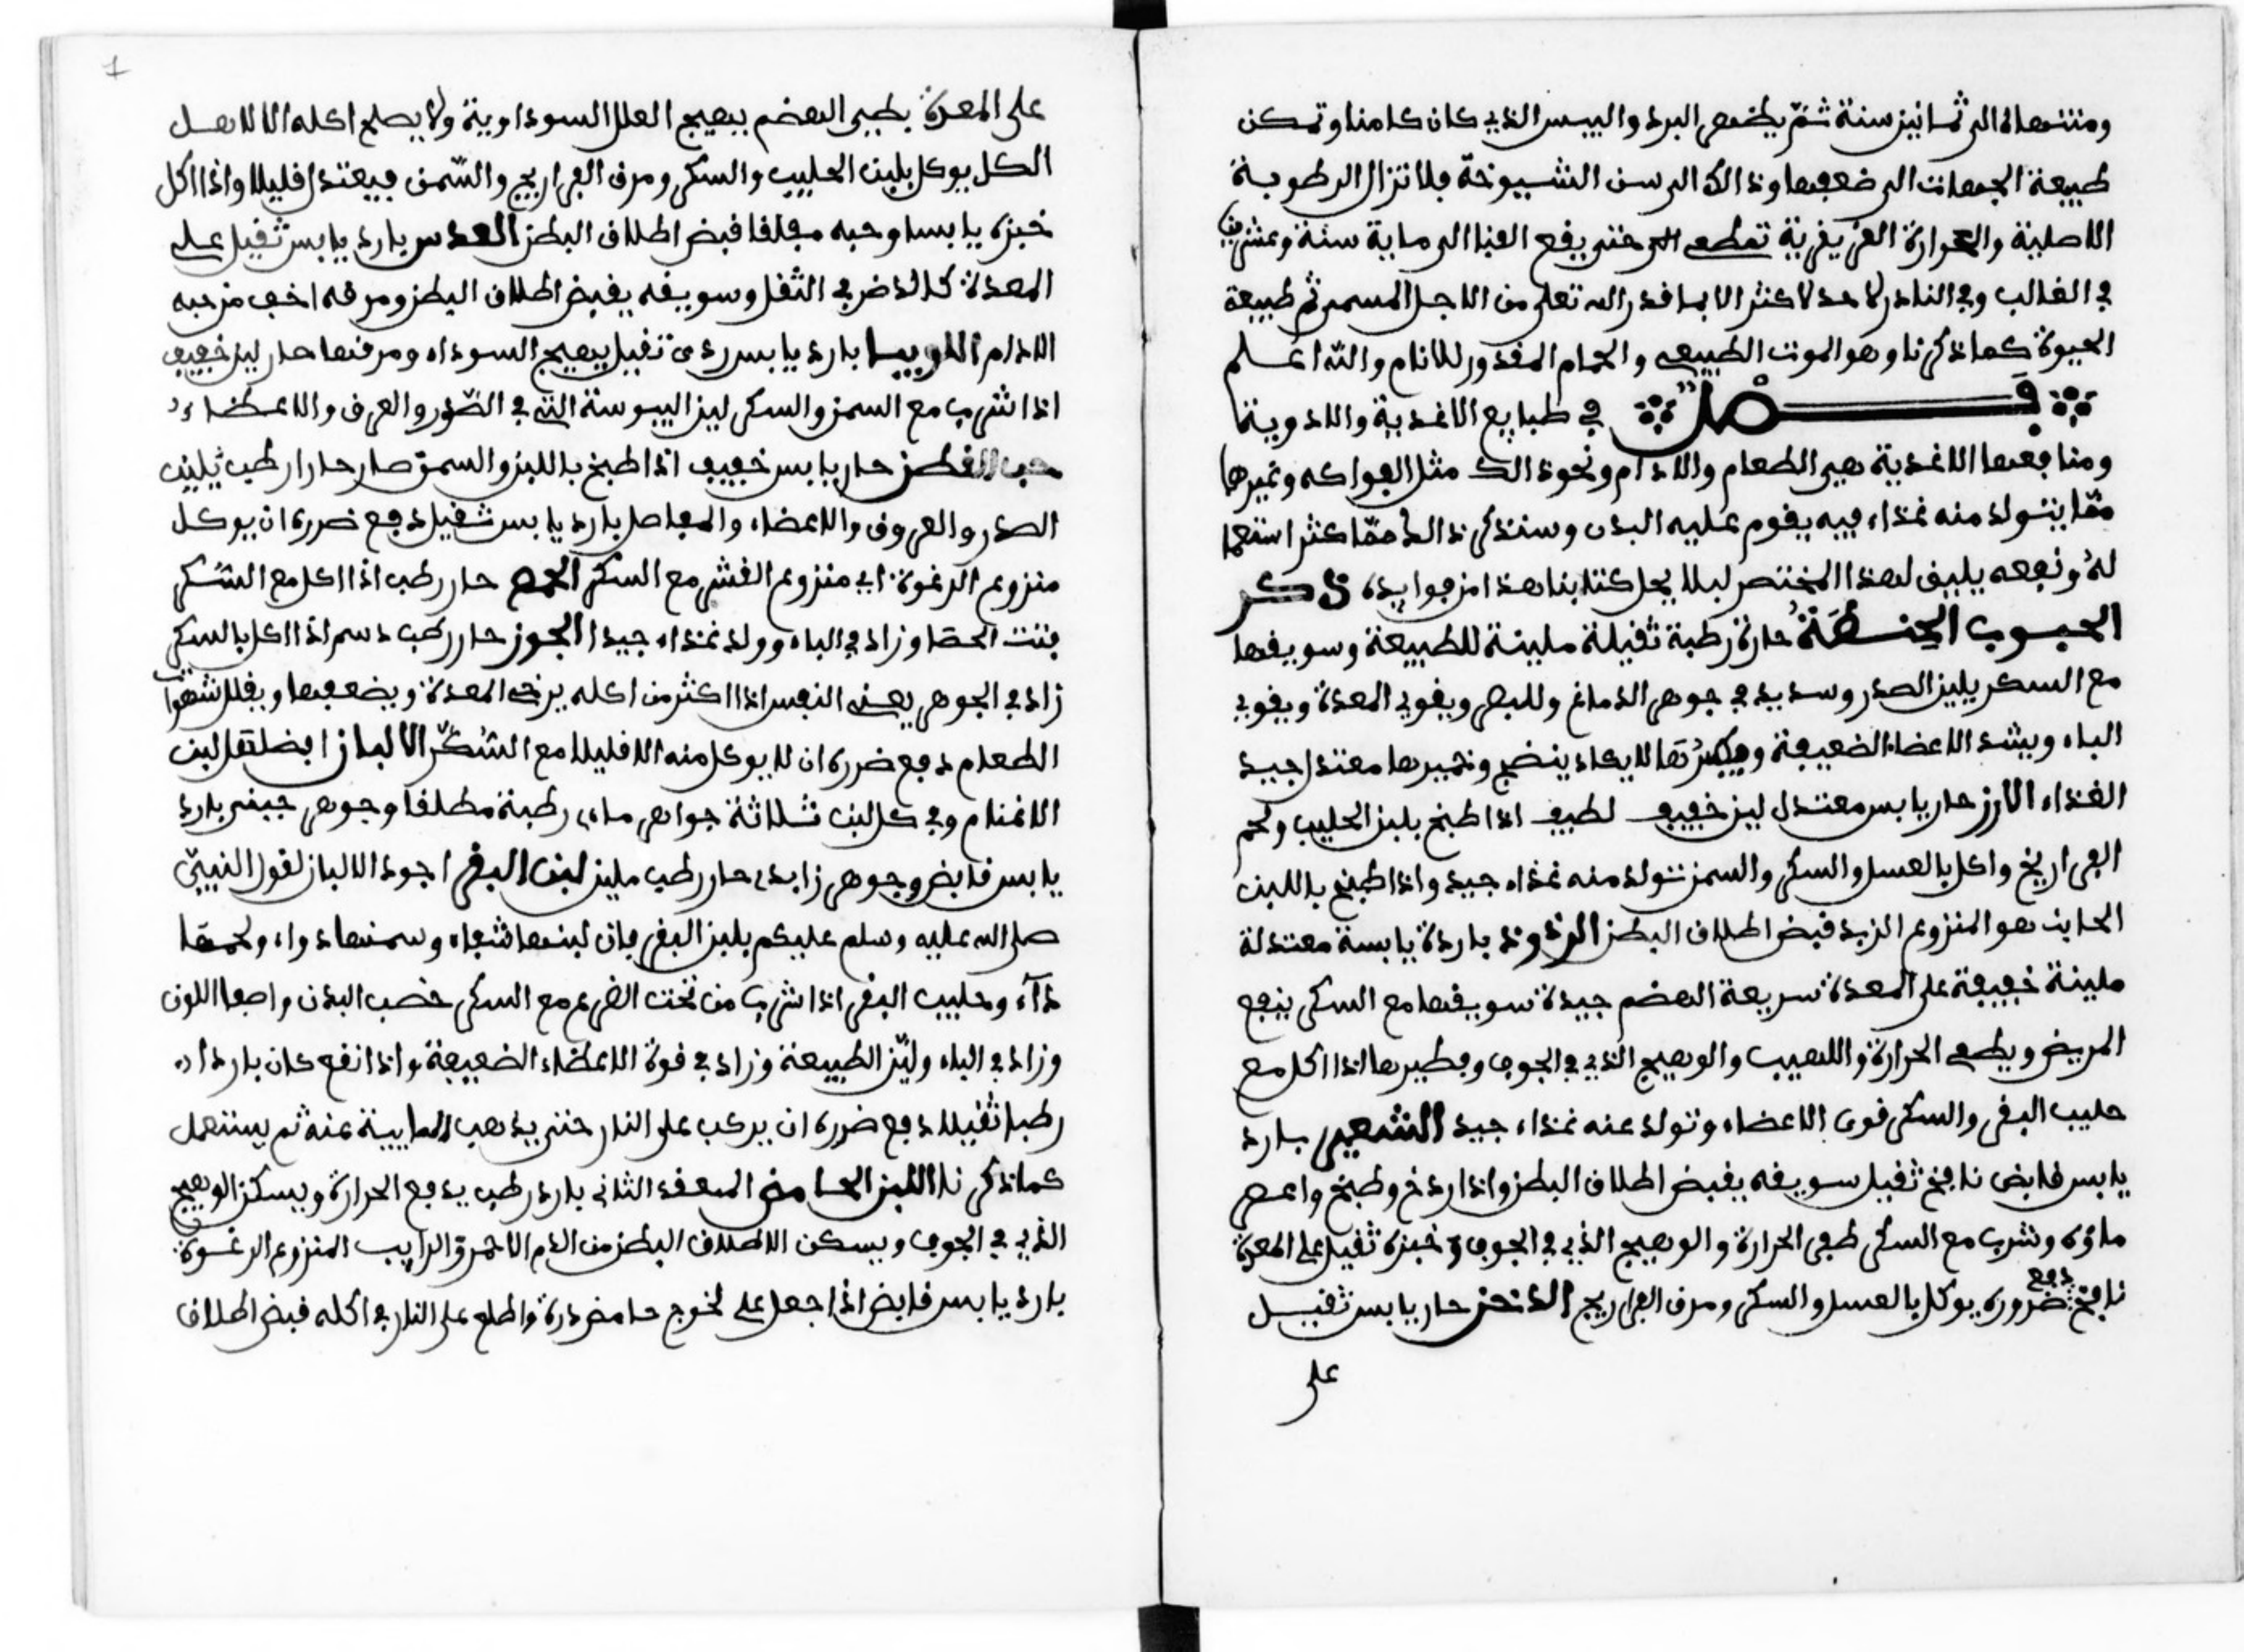 ومنتهاه الى ثمانين سنة ثمّ يظهر البرد واليبس الذي كان كامنا وتمكن
طبيعة الجهات الى ضعفها وذالك الى سن الشيوخة فلا تزال الرطوبة
الاصلية والحرارة الغريزية حتى يقع الفنا الى ماية سنة وعشرين
في الغالب وفي النادر لاحد لاكثر الا بما قدر الله تعلى من الاجل المسمى ثم طبيعة
الحيوة كما ذكرنا وهو الموت الطبيعي والحمام المقدور للانام والله اعلم
فصل في طبايع الاغذية والادوية
ومنافعها الاغذية هي الطعام والادام ونحو ذالك مثل الفواكه وغيرها
ممّا يتولد منه غذاء فيه يقوم عليه البدن وسنذكر ذالك ممّا كثر استعما
له ونفعه يليق لهذا المختصر ليلا يخل كتابنا هذا من فوايده ذكر
الحبوب الحنطة حارة رطبة ثقيلة ملينة للطبيعة وسويقها
مع السكر يلين الصدر وسديد في جوهر الدماغ وللبصر ويقوي المعدة ويقوي
الباه ويشد الاعضاء الضعيفة لا يكاد ينضج وخميرها معتدل جيد
الغذاء الارز حار يابس معتدل لين خفيف لطيف اذا طبخ بلبن الحليب ولحم
الفراريخ واكل بالعسل والسكر والسمن تتولد منه غذاء جيد واذا طبخ باللبن
الحايت هو المنزوع الزبد قبض اطلاق البطن الذرة باردة يابسة معتدلة
ملينة خفيفة على المعدة سريعة الهضم جيدة سويقها مع السكر ينفع
المريض ويطفى الحرارة واللهيب والوهيج الذي في الجوف وفطيرها اذا اكل مع
حليب البقر والسكر قوى الاعضاء وتولد عنه غذاء جيد الشعير بارد
يابس قابض نافخ ثقيل سويقه يقبض اطلاق البطن واذا ردخ وطبخ واعصر
ماؤه وشرب مع السكر طفى الحرارة والوهيج الذي في الجوف وخبزه ثقيل على المعدة
نافخ دفع ضروره يوكل بالعسل والسكر ومرق الفراريج الدخن حار يابس ثقيل
على
1
على المعدة بطيى الهضم يهيج العلل السوداوية ولا يصلح اكله الا لاهل
الكل يوكل بلبن الحليب والسكر ومرق الفراريج والسّمن فيعتدل قليلا واذا اكل
خبزه يابسا وحبه مقلقا قبض اطلاق البطن العدس بارد يابس ثقيل على
المعدة كالذخن في الثقل وسويقه يقبض اطلاق البطن ومرقه اخف من حبه
الادام اللوبيا بارد يابس ردى ثقيل يهيج السوداء ومرقتها حار لين خفيف
اذا شرب مع السمن والسكر لين اليبوسة التي في الصّدر والعرق والاعضاء
حب القطن حار يابس خفيف اذا طبخ باللبن والسمن صار حارا رطب يلين
الصدر والعروق والاعضاء والمفاصل بارد يابس ثقيل دفع ضرره ان يوكل
منزوع الرغوة اي منزوع القشر مع السكر الحمص حار رطب اذا اكل مع السّكر
فتت الحصا وزاد في الباه وولد غذاء جيدا الجوز حار رطب دسم اذا اكل بالسكر
زاد في الجوهر يعنى النفس اذا اكثر من اكله يرخى المعدة ويضعفها ويقلل شهوات
الطعام دفع ضرره ان لا يوكل منه الا قليلا مع السُكّر الالبان افضلها لبن
الاغنام وفي كل لبن ثلاثة جواهر ماء رطبة مطلقا وجوهر جبنى بارد
يابس قابض وجوهر زابد حار رطب ملين لبن البقر اجود الالبان لقول النبيّ
صل الله عليه وسلم عليكم بلبن البقر فان لبنها شفاء وسمنها دواء ولحمها
دآء وحليب البقر اذا شرب من تحت الضرع مع السكر خصب البدن واصفا اللون
وزاد في الباه وليّن الطبيعة وزاد في قوة الاعضاء الضعيفة واذا نفع كان باردا
رطبا ثقيلا دفع ضرره ان يركب على النار حتى يذهب المايية عنه ثم يستعمل
كما ذكرنا اللبن الحامض المعقد الثانى بارد رطب يدفع الحرارة ويسكن الوهيج
الذي في الجوف ويسكن الاطلاق البطن من الدم الاحمر والرايب المنزوع الرغوة
بارد يابس قابض اذا جعل على لخوج حامض ذرة واطلع على النار في اكله قبض اطلاق